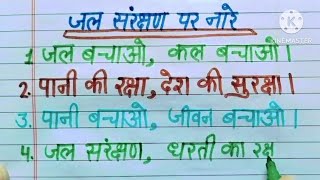 जल संरक्षण पर नारे
1. जल बचाओ, कल बचाओ।
2. पानी की रक्षा, देश की सुरक्षा।
3. पानी बचाओ, जीवन बचाओ।
4. जल सरंक्षण, धरती का रक्ष
KINEMASTER